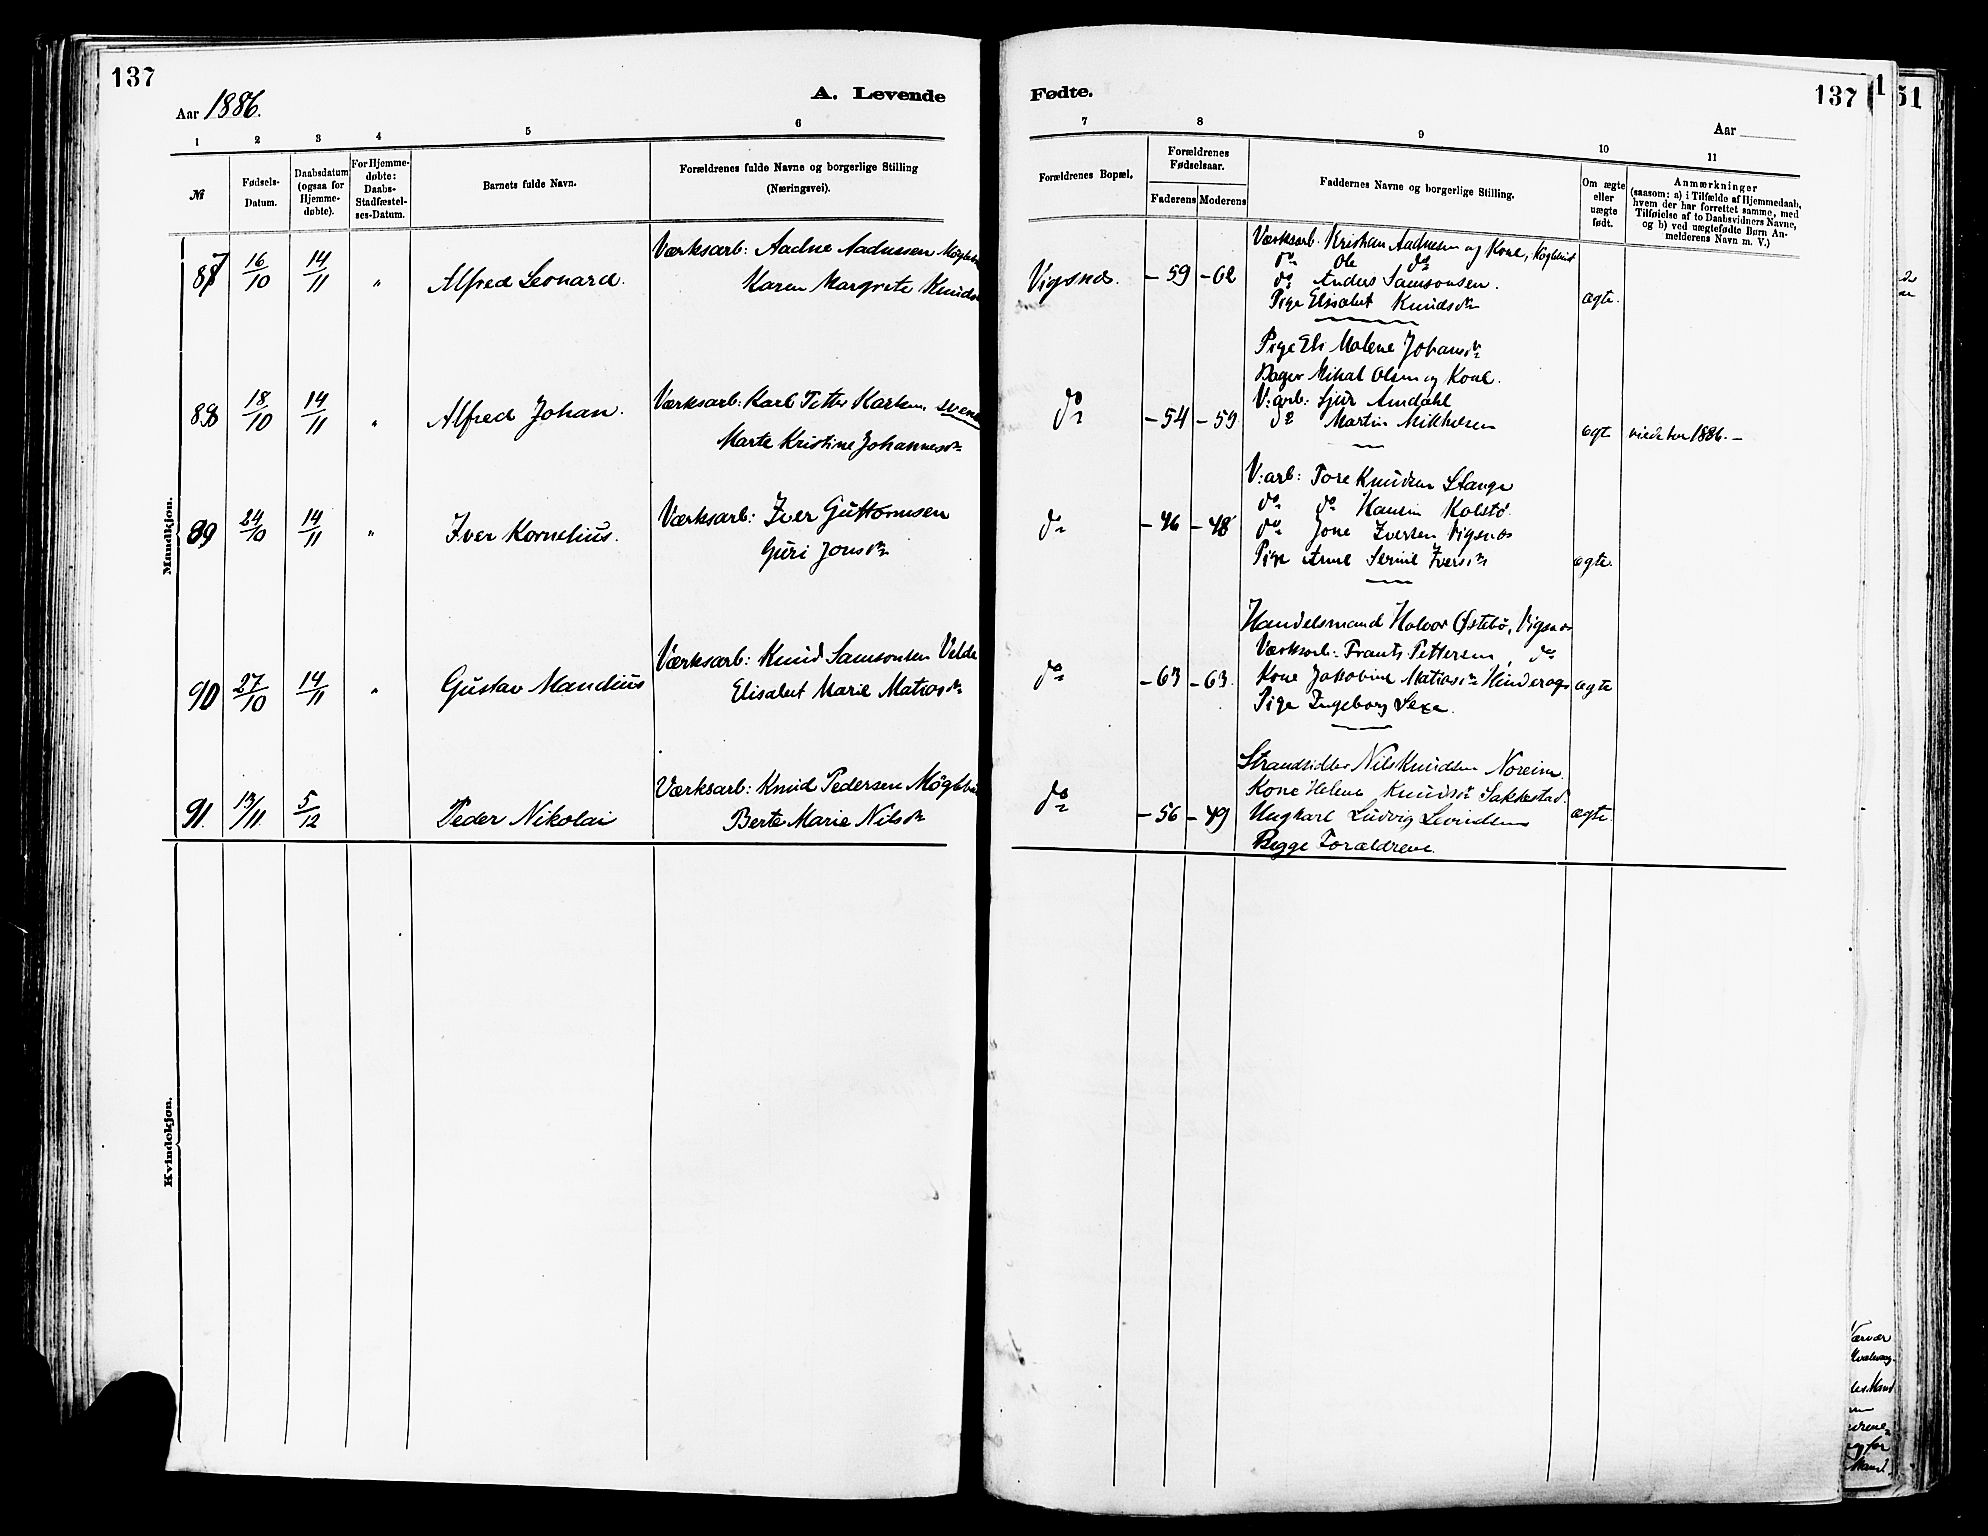 137
Aar 1886.
A. Levende
1 2 3 4 5 6
№
Fødsels-
Datum.
Daabsdatum
(ogsaa for
Hjemme-
døbte).
For Hjemme-
døbte:
Daabs-
Stadfæstel-
ses-Datum.
Barnets fulde Navn.
Forældrenes fulde Navne og borgerlige Stilling
(Næringsvei).
Mandkjøn.
87 16/10 14/11 " Alfred Leonard.
Værksarb: Aadne Aadnesen
Karen Margrete
88 18/10 14/11 " Alfred Johan.
Værksarb: Karl Petter
Marte Kristine Johannesdr
89 24/10 14/11 " Iver Kornelius.
Værksarb: Iver Guttormsen
Guri Jonsdr
90 27/10 14/11 " Gustav Mandius
Værksarb: Knud Samsonsen Velde
Elisabet Marie Matiasdr
91. 13/11 5/12 Peder Nikolai
Værksarb: Knud Pedersen
Berte Marie Nilsdr
Kvindekjøn.
Fødte.
137
Aar
7 8 9 10 11
Forældrenes Bopæl.
Forældrenes
Fødselsaar.
Faderens Moderens
Faddernes Navne og borgerlige Stilling.
Om ægte
eller
uægte
født.
Anmærkninger
(saasom: a) i Tilfælde af Hjemmedaab,
hvem der har forrettet samme, med
Tilføielse af to Daabsvidners Navne,
og b) ved uægtefødte Børn An-
melderens Navn m. V.)
Vigsnæs. - 59 - 62
Værksarb. Kristian Aadnesen og Kone,
do Ole do
do Anders Samsonsen.
Pige Elisabet Knudsdr
ægte.
do - 54 - 59
Pige Eli Malene Johansdr
Bager Mikal Olsen og Kone.
V:arb: Sjur Amdahl
do Martin Mikkelsen
ægte
1886. -
do - 46 - 48
V:arb: Tore Knudsen Stange
do do Hansen Kolstø.
do Jone Iversen Vigsnæs
Pige Anne Serine Iversdr
ægte.
do - 63 - 63.
Handelsmand Halvor Østebø, Vigsnæs
Værksarb: Frants Pettersen, do
Kone Jakobine Matiasdr
Pige Ingeborg Sexe.
ægte
do - 56 - 49
Strandsidder Nils Knudsen Noreim.
Kone Helene Knudsdr Sakkestad.
Ungkarl Ludvig
Begge Forældrene.
ægte.
1
51